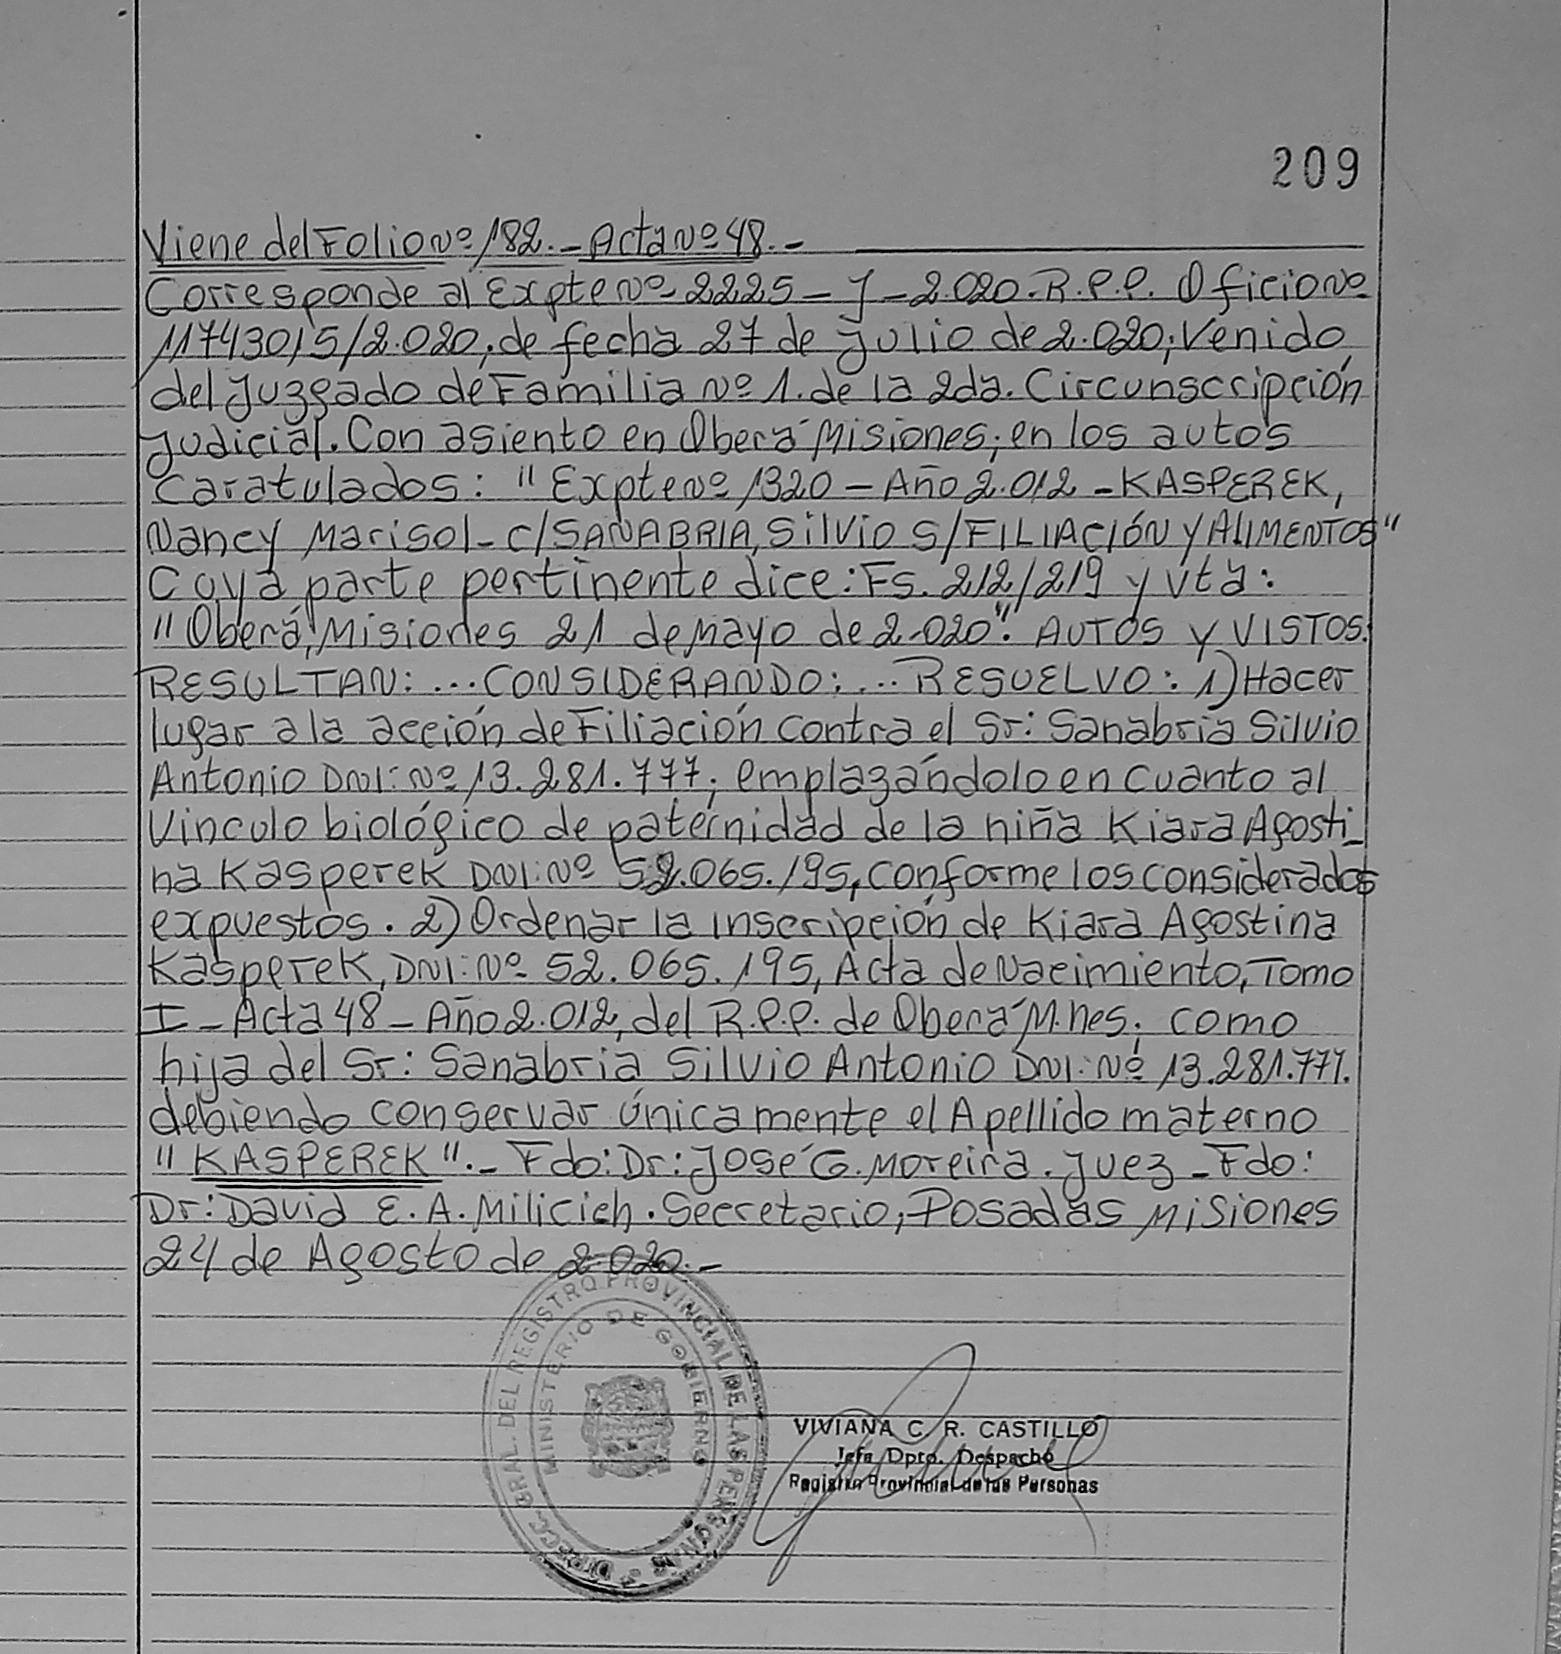 209
Viene del Folio Nº 182.- Acta Nº 48.-
Corresponde al Expte Nº 2225 - J - 2.020. R.P.P. Oficio Nº
11743015/2.020, de fecha 27 de Julio de 2.020; Venido
del Juzgado de Familia Nº 1. de la 2da. Circunscripción
Judicial. Con asiento en Oberá Misiones; en los autos
Caratulados: "Expte Nº 1320 - Año 2.012 - KASPEREK,
Nancy Marisol - C/SANABRIA, Silvio S/FILIACIÓN Y ALIMENTOS"
Cuya parte pertinente dice: Fs. 212/219 y vta:
"Oberá, Misiones 21 de Mayo de 2.020". AUTOS Y VISTOS.
RESULTAN: ... CONSIDERANDO: ... RESUELVO: 1) Hacer
lugar a la acción de Filiación contra el Sr: Sanabria Silvio
Antonio DNI: Nº 13.281.777; emplazándolo en cuanto al
Vinculo biológico de paternidad de la niña Kiara Agosti_
na Kasperek DNI: Nº 52.065.195, conforme los considerados
expuestos. 2) Ordenar la inscripción de Kiara Agostina
Kasperek, DNI: Nº 52.065.195, Acta de Nacimiento, Tomo
I - Acta 48 - Año 2.012, del R.P.P. de Oberá M.nes; como
hija del Sr: Sanabria Silvio Antonio DNI: Nº 13.281.777.
debiendo conservar únicamente el Apellido materno
"KASPEREK".- Fdo: Dr: José G. Moreira. Juez - Fdo:
Dr: David E. A. Milicich. Secretario; Posadas Misiones
24 de Agosto de 2.020.-
DIRECC. GRAL. DEL REGISTRO PROVINCIAL DE LAS PERSONAS
MINISTERIO DE GOBIERNO
VIVIANA C. R. CASTILLO
Jefa Dpto. Despacho
Registro Provincial de las Personas